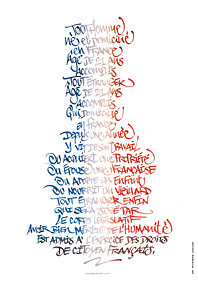 Tout homme
né et domicilié
en France
âgé de 21 ans
accomplis
Tout étranger
âgé de 21 ans
accomplis
qui domicilié
en France
depuis une année
y vit de son travail
ou acquiert une propriété
ou épouse une Française
ou adopte un enfant
ou nourrit un vieillard
Tout étranger enfin
qui sera jugé par
le corps législatif
avoir bien mérité de l'humanité
est admis à l'exercice des droits
de citoyen français.